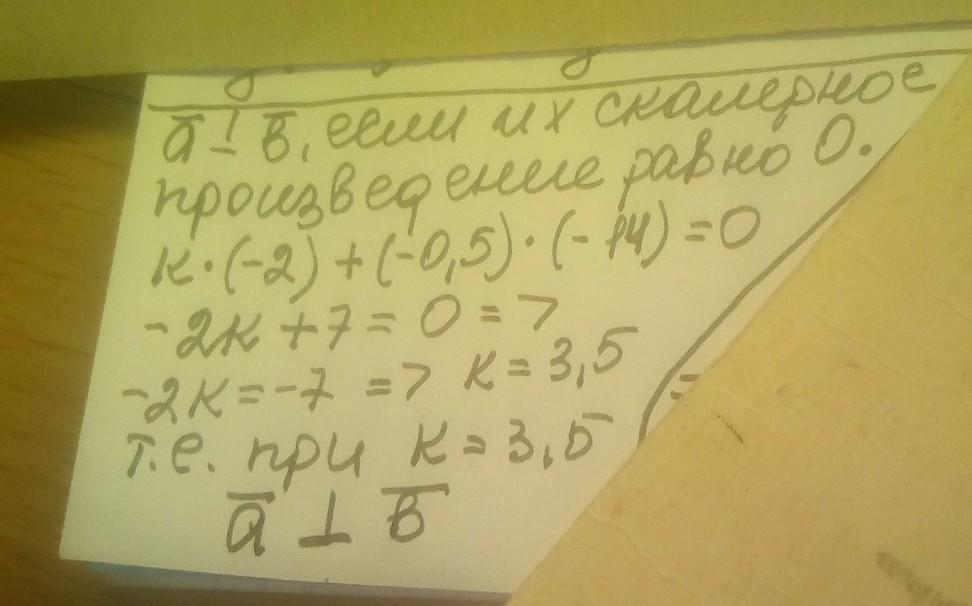 ā ⊥ b̄, если их скалярное
произведение равно 0.
к·(-2)+(-0,5)·(-14)=0
-2к+7=0=>
-2к=-7 => к=3,5
т.е. при к=3,5
ā ⊥ b̄